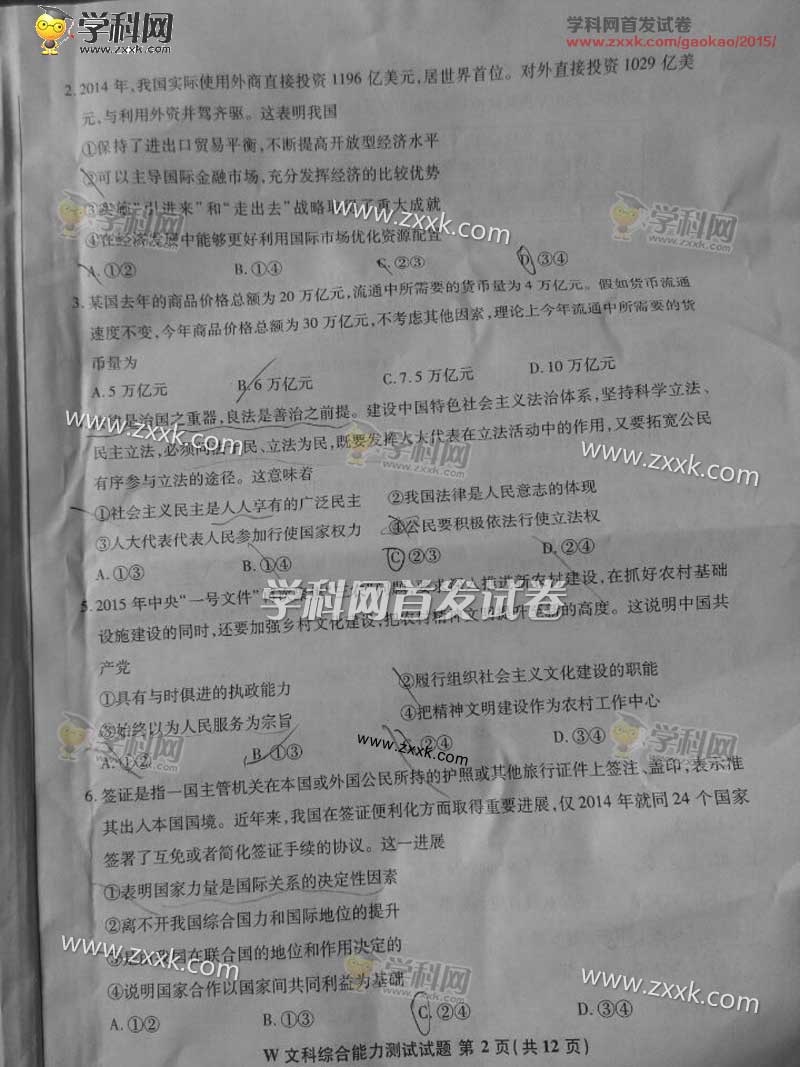 学科网
www.zxxk.com
学科网首发试卷
www.zxxk.com/gaokao/2015/
2. 2014 年,我国实际使用外商直接投资 1196 亿美元,居世界首位。对外直接投资 1029 亿美
元,与利用外资并驾齐驱。这表明我国
①保持了进出口贸易平衡,不断提高开放型经济水平
②可以主导国际金融市场,充分发挥经济的比较优势
③实施“引进来”和“走出去”战略取得了重大成就
④在经济发展中能够更好利用国际市场优化资源配置
A.①② B.①④ C.②③ D.③④
3. 某国去年的商品价格总额为 20 万亿元,流通中所需要的货币量为 4 万亿元。假如货币流通
速度不变,今年商品价格总额为 30 万亿元,不考虑其他因素,理论上今年流通中所需要的货
币量为
A.5 万亿元 B.6 万亿元 C.7.5 万亿元 D.10 万亿元
法律是治国之重器,良法是善治之前提。建设中国特色社会主义法治体系,坚持科学立法、
民主立法,必须 民、立法为民,既要发挥人大代表在立法活动中的作用,又要拓宽公民
有序参与立法的途径。这意味着
①社会主义民主是人人享有的广泛民主 ②我国法律是人民意志的体现
③人大代表代表人民参加行使国家权力 ④公民要积极依法行使立法权
A.①③ B.①④ C.②③ D.②④
5. 2015 年中央“一号文件” 推进新农村建设,在抓好农村基础
设施建设的同时,还要加强乡村文化建设,把农村精神文明提升 的高度。这说明中国共
产党
①具有与时俱进的执政能力 ②履行组织社会主义文化建设的职能
③始终以为人民服务为宗旨 ④把精神文明建设作为农村工作中心
A.①② B.①③ C.②④ D.③④
学科网首发试卷
6. 签证是指一国主管机关在本国或外国公民所持的护照或其他旅行证件上签注、盖印,表示准
其出入本国国境。近年来,我国在签证便利化方面取得重要进展,仅 2014 年就同 24 个国家
签署了互免或者简化签证手续的协议。这一进展
①表明国家力量是国际关系的决定性因素
②离不开我国综合国力和国际地位的提升
③是 我国在联合国的地位和作用决定的
④说明国家合作以国家间共同利益为基础
A.①② B.①③ C.②④ D.③④
W 文科综合能力测试试题 第 2 页(共 12 页)